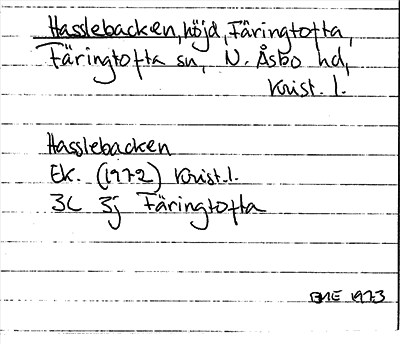 Hasslebacken, höjd, Färingtofta,
Färingtofta sn, N. Åsbo hd,
Krist. l.
Hasslebacken
Ek. (1972) Krist.l.
3C 3j Färingtofta
BME 1973